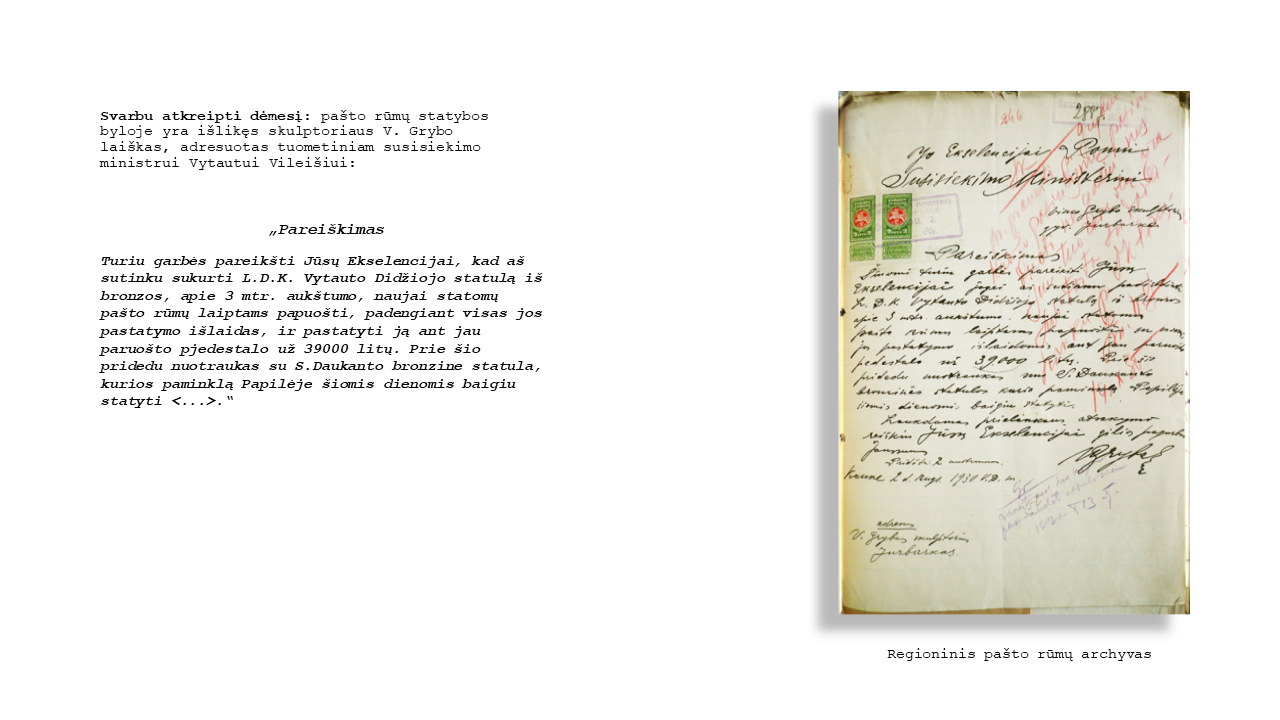 Svarbu atkreipti dėmesį: pašto rūmų statybos
byloje yra išlikęs skulptoriaus V. Grybo
laiškas, adresuotas tuometiniam susisiekimo
ministrui Vytautui Vileišiui:
„Pareiškimas
Turiu garbės pareikšti Jūsų Ekselencijai, kad aš
sutinku sukurti L.D.K. Vytauto Didžiojo statulą iš
bronzos, apie 3 mtr. aukštumo, naujai statomų
pašto rūmų laiptams papuošti, padengiant visas jos
pastatymo išlaidas, ir pastatyti ją ant jau
paruošto pjedestalo už 39000 litų. Prie šio
pridedu nuotraukas su S.Daukanto bronzine statula,
kurios paminklą Papilėje šiomis dienomis baigiu
statyti <...>.“
246
Jo Ekselencijai Ponui
Susisiekimo Ministeriui
Vincas Grybas skulptorius
gyv. Jurbarke
Pareiškimas
Šiuomi turiu garbės pareikšti Jūsų
Ekselencijai jogei aš sutinku
L. D. K. Vytauto Didžiojo statulą iš bronzos
apie 3 mtr. aukštumo naujai statomų
pašto rūmų laiptams papuošti
pastatymo išlaidomis ant jau
pedestalo už 39000 litų. Prie šio
pridedu nuotraukas nuo S. Daukanto
bronzinės statulos kurio paminklą Papilėje
šiomis dienomis baigiu statyti.
Laukdamas prielankaus atsakymo
reiškiu Jūsų Ekselencijai gilios pagarbos
jausmus
VGrybas
Kaune 2 d. Rugs. 1930 V.D. m.
adresas
V. Grybas skulptorius
Jurbarkas
Regioninis pašto rūmų archyvas